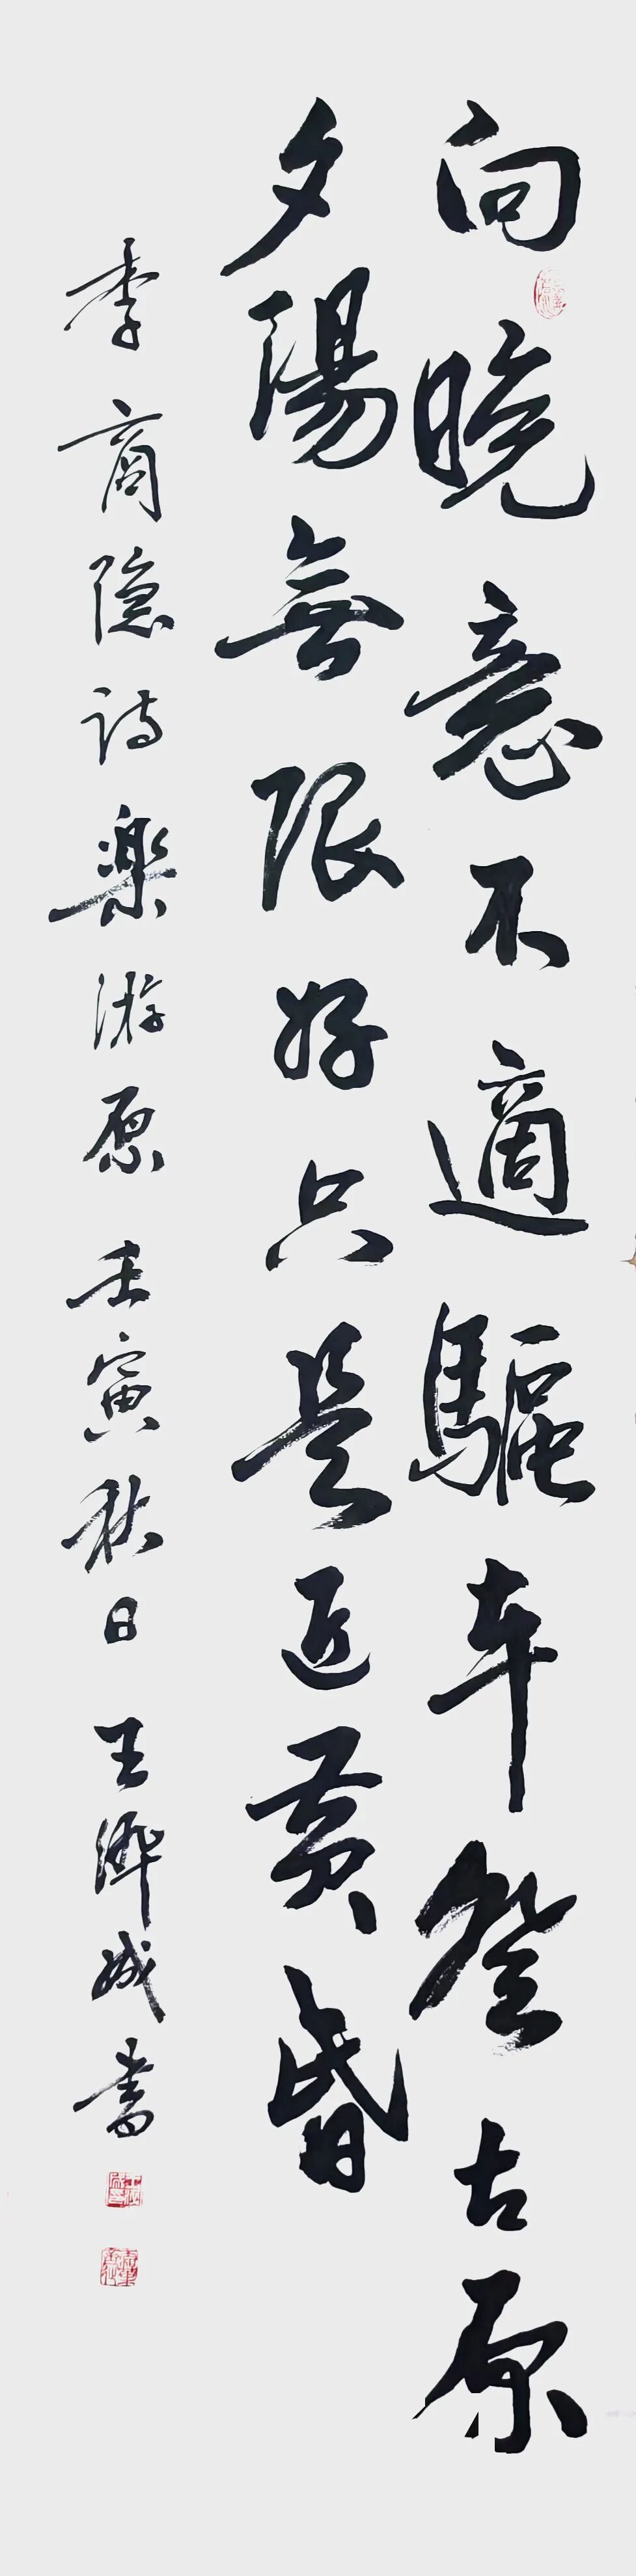 向晚意不適驅車登古原
夕陽無限好只是近黄昏
李商隐詩楽游原 壬寅秋日 王 城書